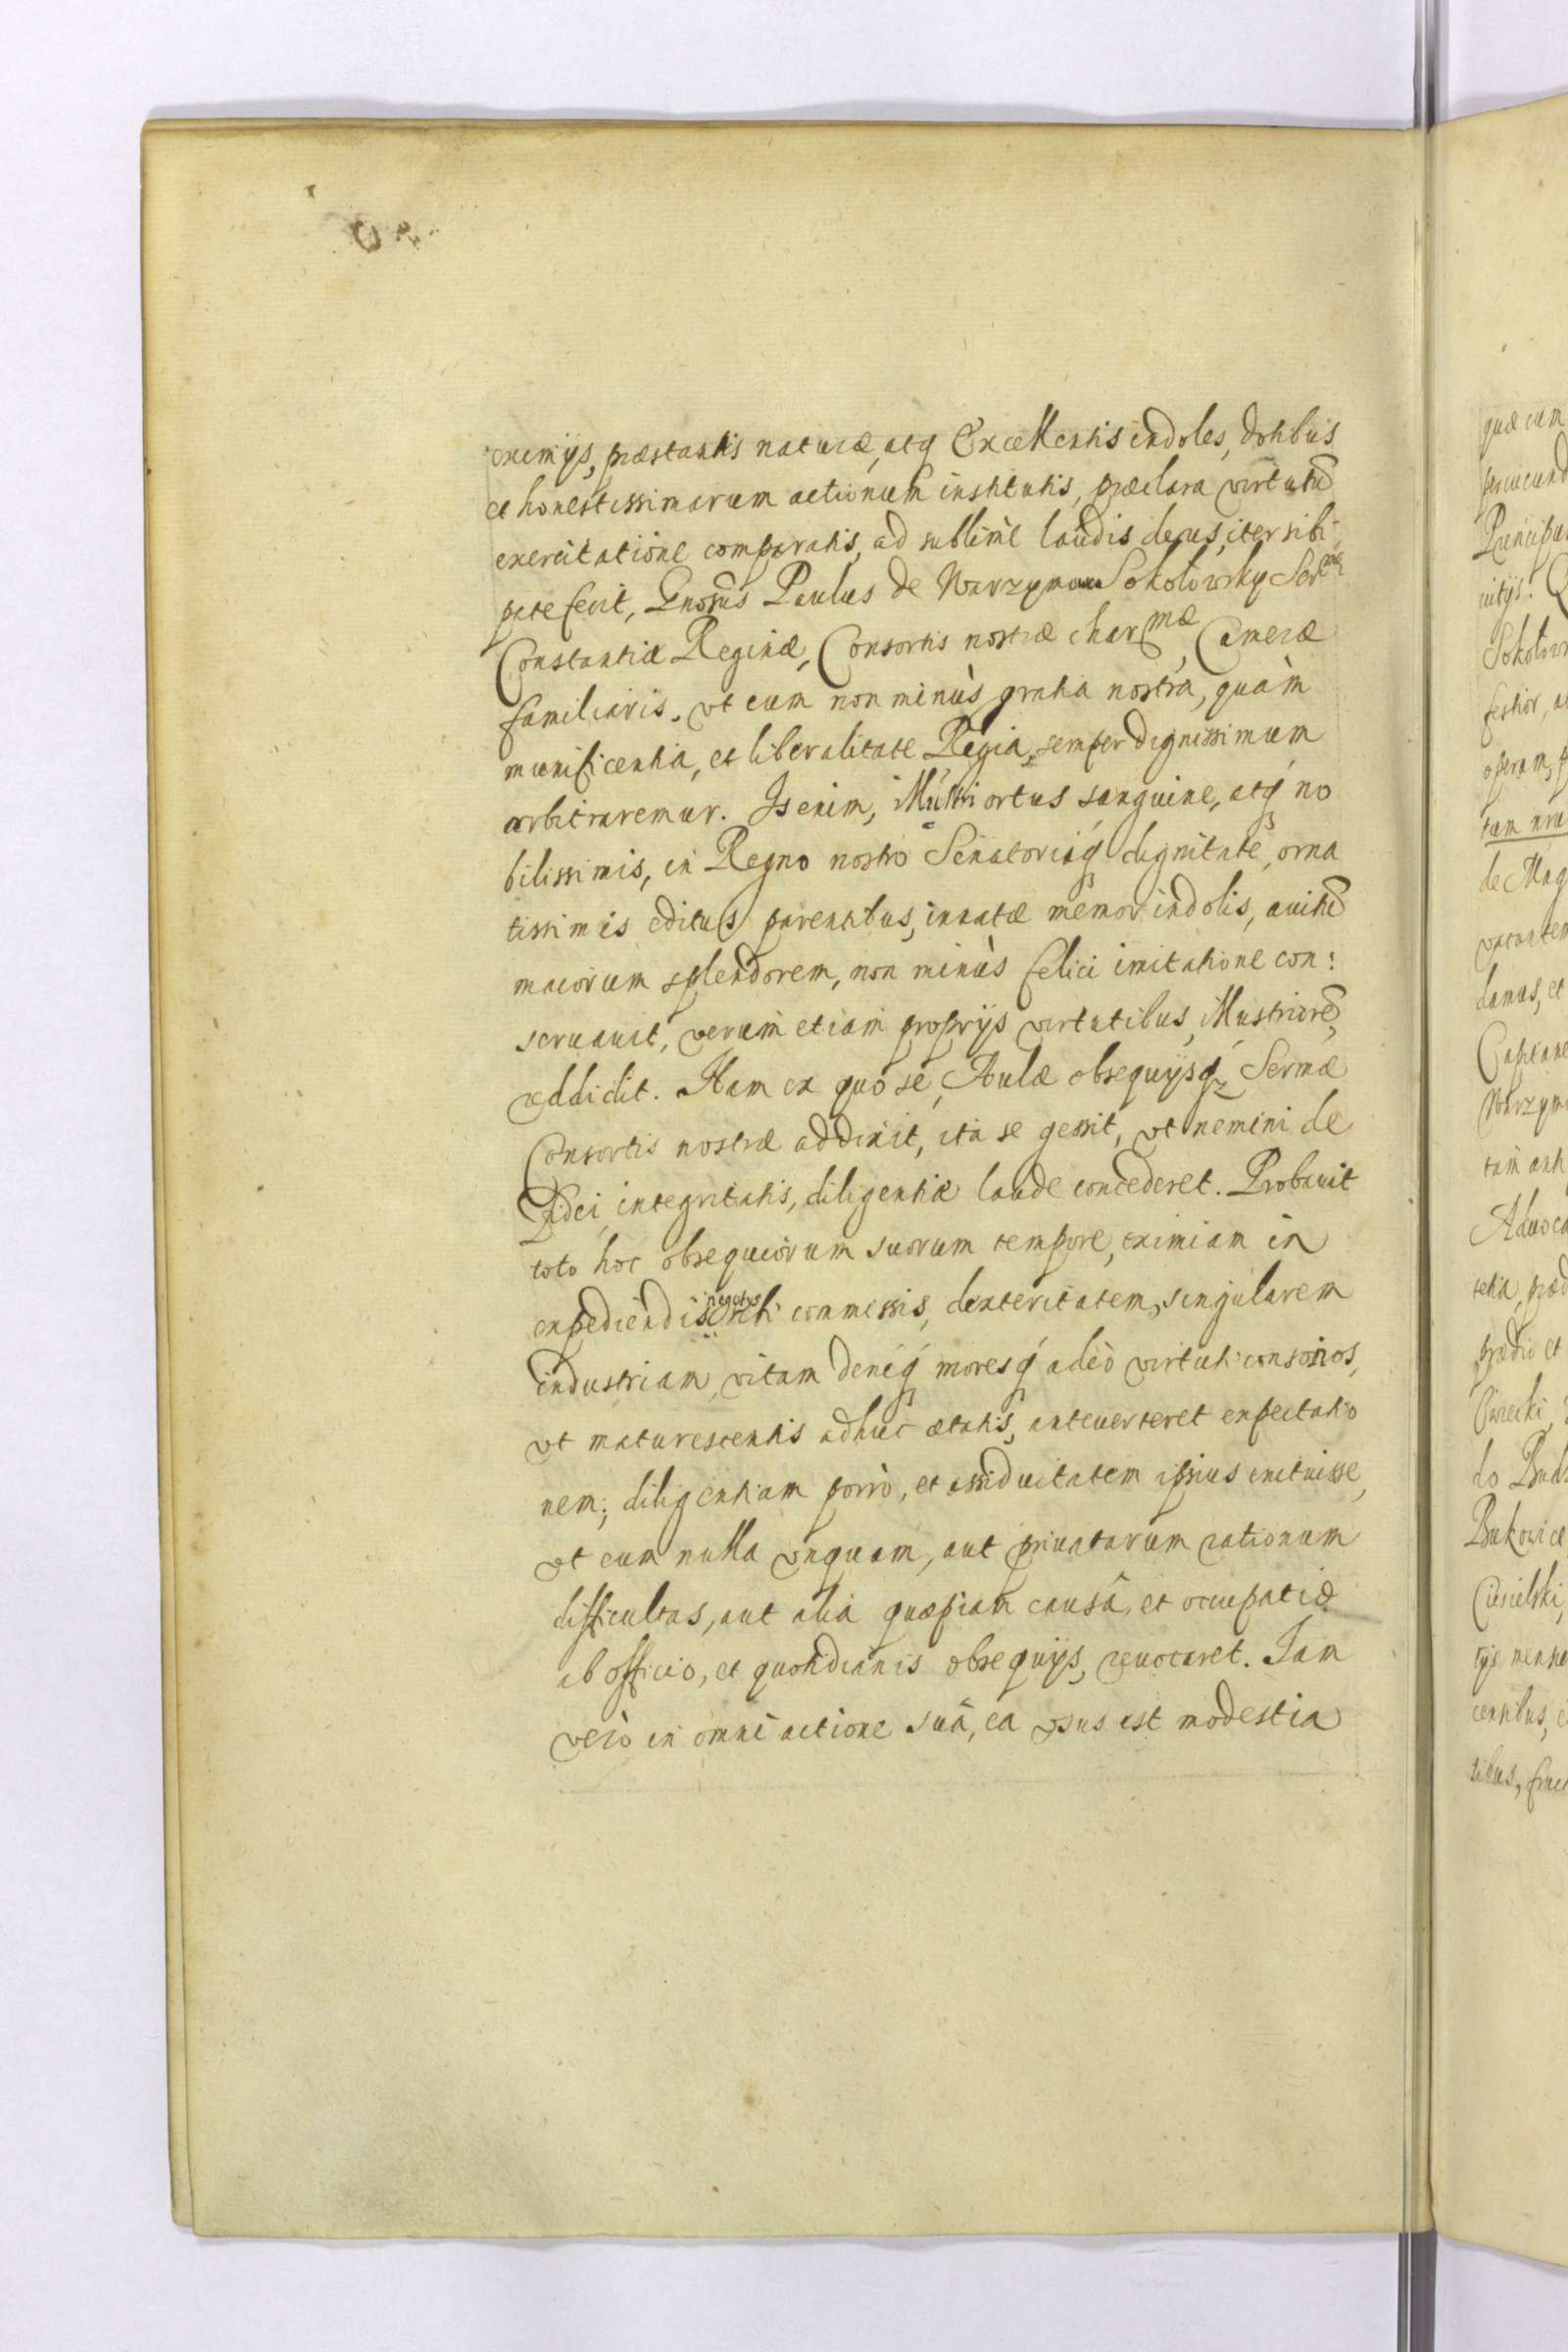 eximijs, præstantis naturæ, atq Excellentis indoles, dotibus
et honestissimarum actionum institutis, præclara virtutū
exercitatione comparatis, ad sublime laudis decus, iter sibi
patefecit, Gnosus Paulus de Warzymowa Sokołowsky Ser
Constantiæ Reginæ, Consortis nostræ charmæ, Cameræ
familiaris. vt eum non minùs gratia nostra, quàm
munificentia, et liberalitate Regia, semper dignissimum
arbitraremur. Is enim, illustri ortus sanguine, atq no
bilissimis, in Regno nostro Senatoriaq dignitate, orna
tissimis editus parentibus, innatæ memor indolis, auitū
maiorum splendorem, non minùs felici imitatione con:
seruauit, verum etiam proprijs virtutibus, Illustriorē,
reddidit. Nam ex quo se, Aulæ obsequijsq Sermæ
Consortis nostræ addixit, ita se gessit, vt nemini de
Fidei, integritatis, diligentiæ laude concederet. Probauit
toto hoc obsequiorum suorum tempore, eximiam in
expediendis negotijs sibi commissis, dexteritatem, singularem
industriam, vitam deniq moresq adeò virtuti consonos,
vt maturescentis adhuc ætatis, anteuerteret expectatio
nem; diligentiam porrò, et assiduitatem ipsius enituisse,
vt eum nulla vnquam, aut priuatarum rationum
difficultas, aut alia quæpiam causa, et occupatio
ab officio, et quotidianis obsequijs, reuocaret. Iam
verò in omni actione suâ, ea vsus est modestia
quæ cum
Principu
Sokołow
operam, p
de Mag
vacantem
lamus, et
Capitane
Warzym
tam anh
Aduoca
prædio et
do Bud
Bukowice
Cisielski,